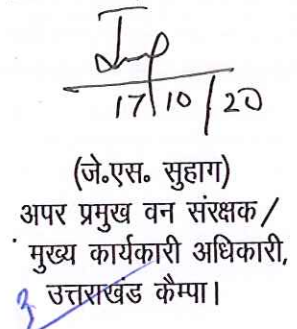 17/10/20
(जे॰एस॰ सुहाग)
अपर प्रमुख वन संरक्षक/
मुख्य कार्यकारी अधिकारी,
उत्तराखंड कैम्पा।